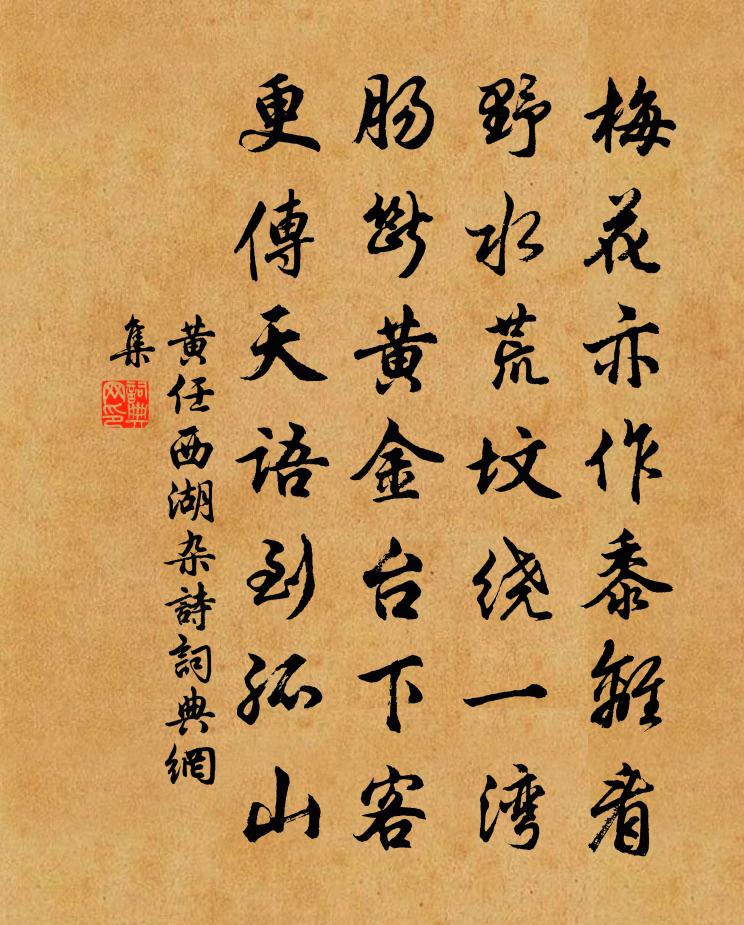 梅花亦作黍離看
野水荒坟绕一湾
肠斷黄金台下客
更傳天語到孤山
黄任西湖杂詩詞典網
集
詞典
网印